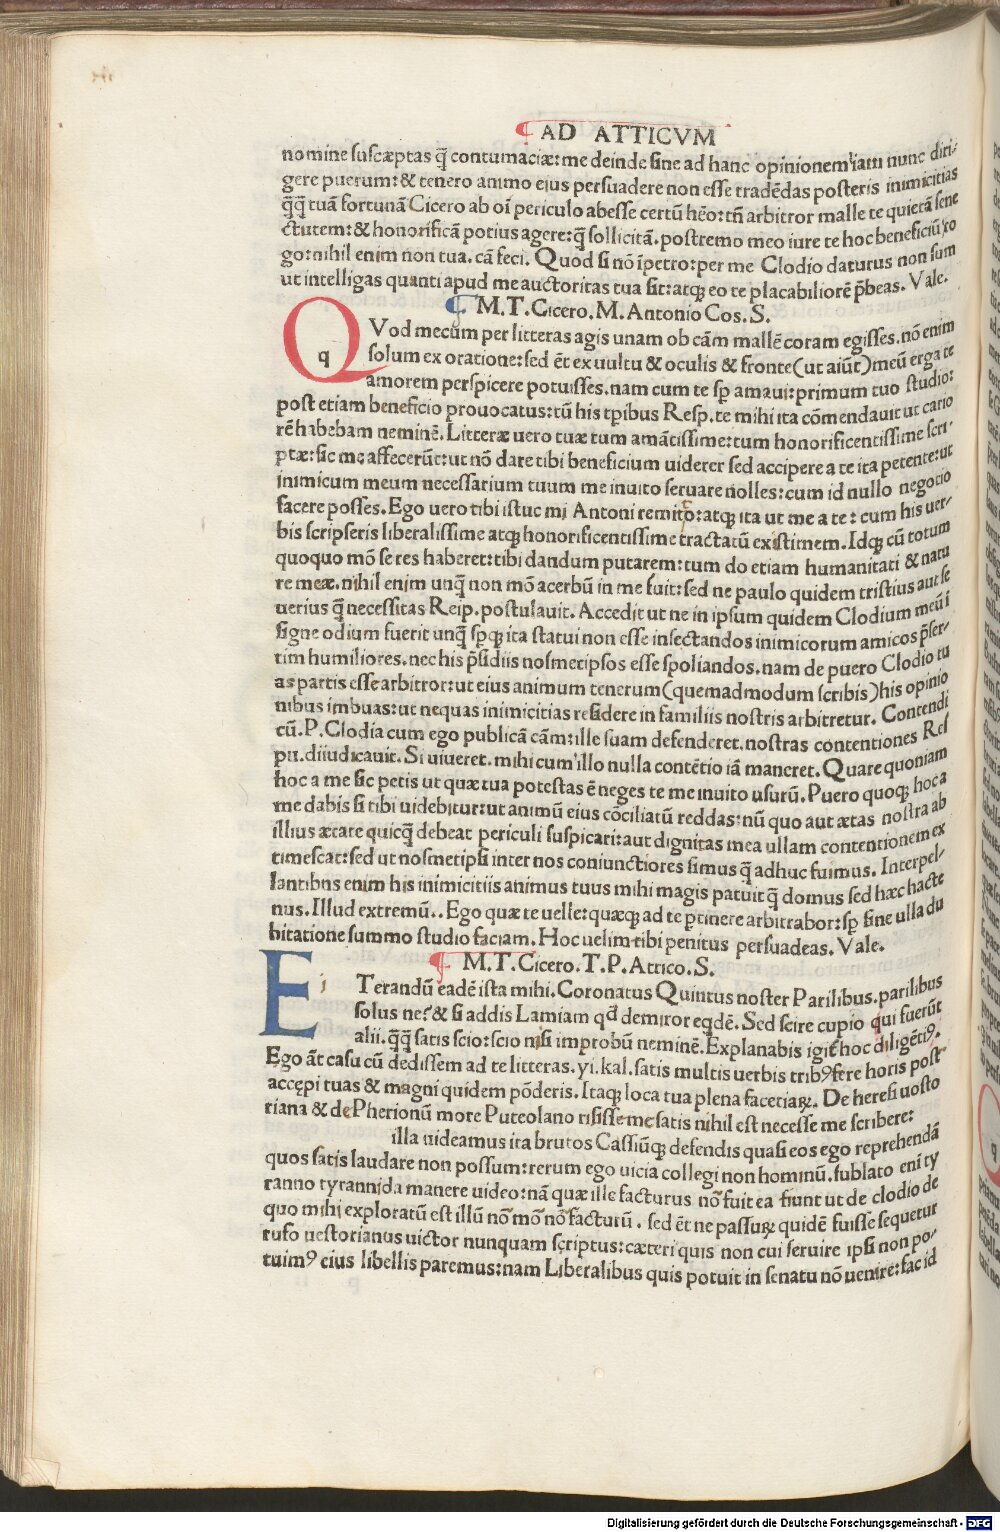 AD ATTICVM
nomine suscæptas q̃ contumaciæ: me deinde sine ad hanc opinionem iam nunc diri-
gere puerum: & tenero animo eius persuadere non esse tradẽdas posteris inimicitias
q̃q̃ tuã fortunã Cicero ab oĩ periculo abesse certũ hẽo: tñ arbitror malle te quietã sene
ctutem: & honorificã potius agere: q̃ sollicitã. postremo meo iure te hoc beneficiũ ro
go: nihil enim non tua. cã feci. Quod si nõ ĩpetro: per me Clodio daturus non sum
ut intelligas quanti apud me auctoritas tua sit: atqꝫ eo te placabiliorẽ p̃beas. Vale.
M. T. Cicero. M. Antonio Cos. S.
QVod mecum per litteras agis unam ob cãm mallẽ coram egisses. nõ enim
q solum ex oratione: sed ẽt ex uultu & oculis & fronte (ut aiũt) meũ erga te
amorem perspicere potuisses. nam cum te sp̃ amaui: primum tuo studio:
post etiam beneficio prouocatus: tũ his tp̃ibus Resp. te mihi ita cõmendauit ut cario
rẽ habebam neminẽ. Litteræ uero tuæ tum amãtissime: tum honorificentissime scri-
ptæ: sic me affecerũt: ut nõ dare tibi beneficium uiderer sed accipere a te ita petente: ut
inimicum meum necessarium tuum me inuito seruare nolles: cum id nullo negocio
facere posses. Ego uero tibi istuc mi Antoni remitto: atqꝫ ita ut me a te: cum his uer-
bis scripseris liberalissime atqꝫ honorificentissime tractatũ existimem. Idqꝫ cũ totum
quoquo mõ se res haberet: tibi dandum putarem: tum do etiam humanitati & natu
re meæ. nihil enim unq̃ non mõ acerbũ in me fuit: sed ne paulo quidem tristius aut se
uerius q̃ necessitas Reip. postulauit. Accedit ut ne in ipsum quidem Clodium meũ ĩ
signe odium fuerit unq̃ sp̃qꝫ ita statui non esse insectandos inimicorum amicos p̃ser-
tim humiliores. nec his p̃sidiis nosmetipsos esse spoliandos. nam de puero Clodio tu
as partis esse arbitror: ut eius animum tenerum (quemadmodum scribis) his opinio
nibus imbuas: ut nequas inimicitias residere in familiis nostris arbitretur. Contendi
cũ. P. Clodia cum ego publicã cãm: ille suam defenderet. nostras contentiones Res
pu. diiudicauit. Si uiueret. mihi cum illo nulla contẽtio iã maneret. Quare quoniam
hoc a me sic petis ut quæ tua potestas ẽ neges te me inuito usurũ. Puero quoqꝫ hoc a
me dabis si tibi uidebitur: ut animũ eius cõciliatũ reddas: nũ quo aut ætas nostra ab
illius ætate quicq̃ debeat periculi suspicari: aut dignitas mea ullam contentionem ex
timescat: sed ut nosmetipsi inter nos coniunctiores simus q̃ adhuc fuimus. Interpel-
lantibns enim his inimicitiis animus tuus mihi magis patuit q̃ domus sed hæc hacte
nus. Illud extremũ.. Ego quæ te uelle: quæqꝫ ad te ꝑtinere arbitrabor: sp̃ sine ulla du
bitatione summo studio faciam. Hoc uelim tibi penitus persuadeas. Vale.
M. T. Cicero. T. P. Attico. S.
E i Terandũ eadẽ ista mihi. Coronatus Quintus noster Parilibus. parilibus
solus ne? & si addis Lamiam qđ demiror eqdẽ. Sed scire cupio qui fuerũt
alii. q̃q̃ satis scio: scio nisi improbũ neminẽ. Explanabis igit̃ hoc diligẽtiꝰ.
Ego ãt casu cũ dedissem ad te litteras. yi. kal. satis multis uerbis tribꝰ fere horis post
accępi tuas & magni quidem põderis. Itaqꝫ loca tua plena facetiaꝝ. De heresi uosto
riana & de Pherionũ more Puteolano risisse me satis nihil est necesse me scribere:
illa uideamus ita brutos Cassiũqꝫ defendis quasi eos ego reprehendã
quos satis laudare non possum: rerum ego uicia collegi non hominũ. sublato eni ty
ranno tyrannida manere uideo: nã quæ ille facturus nõ fuit ea fiunt ut de clodio de
quo mihi exploratũ est illũ nõ mõ nõ facturũ. sed ẽt ne passuꝝ quidẽ fuisse sequetur
rufo uestorianus uictor nunquam scriptus: cæteri quis non cui seruire ipsi non po-
tuimꝰ eius libellis paremus: nam Liberalibus quis potuit in senatu nõ uenire: fac id
Digitalisierung gefördert durch die Deutsche Forschungsgemeinschaft - DFG